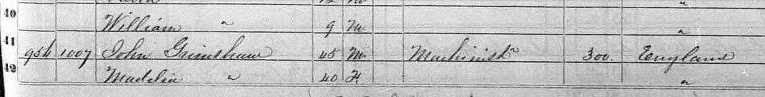 40
William " 9 M "
41
954 1007 John Grimshaw 45 M Machinist 300. England
42
Madelia " 40 F "